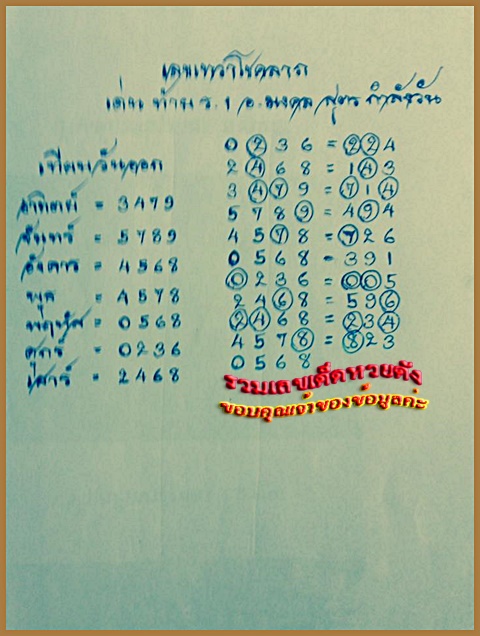 เลขเทวาโชคลาภ
เด่น ท้าน ร.1 อ.มงคล สูตร กำลังวัน
เทียบวันออก
อาทิตย์ = 3479
จันทร์ = 5789
อังคาร = 4568
พุธ = 4578
พฤหัส = 0568
ศุกร์ = 0236
เสาร์ = 2468
0236 = 224
2468 = 143
3479 = 714
5789 = 494
4578 = 726
0568 = 391
0236 = 005
2468 = 596
2468 = 234
4578 = 823
0568
รวมเลขเด็ดหวยดัง
ขอบคุณเจ้าของข้อมูลค่ะ